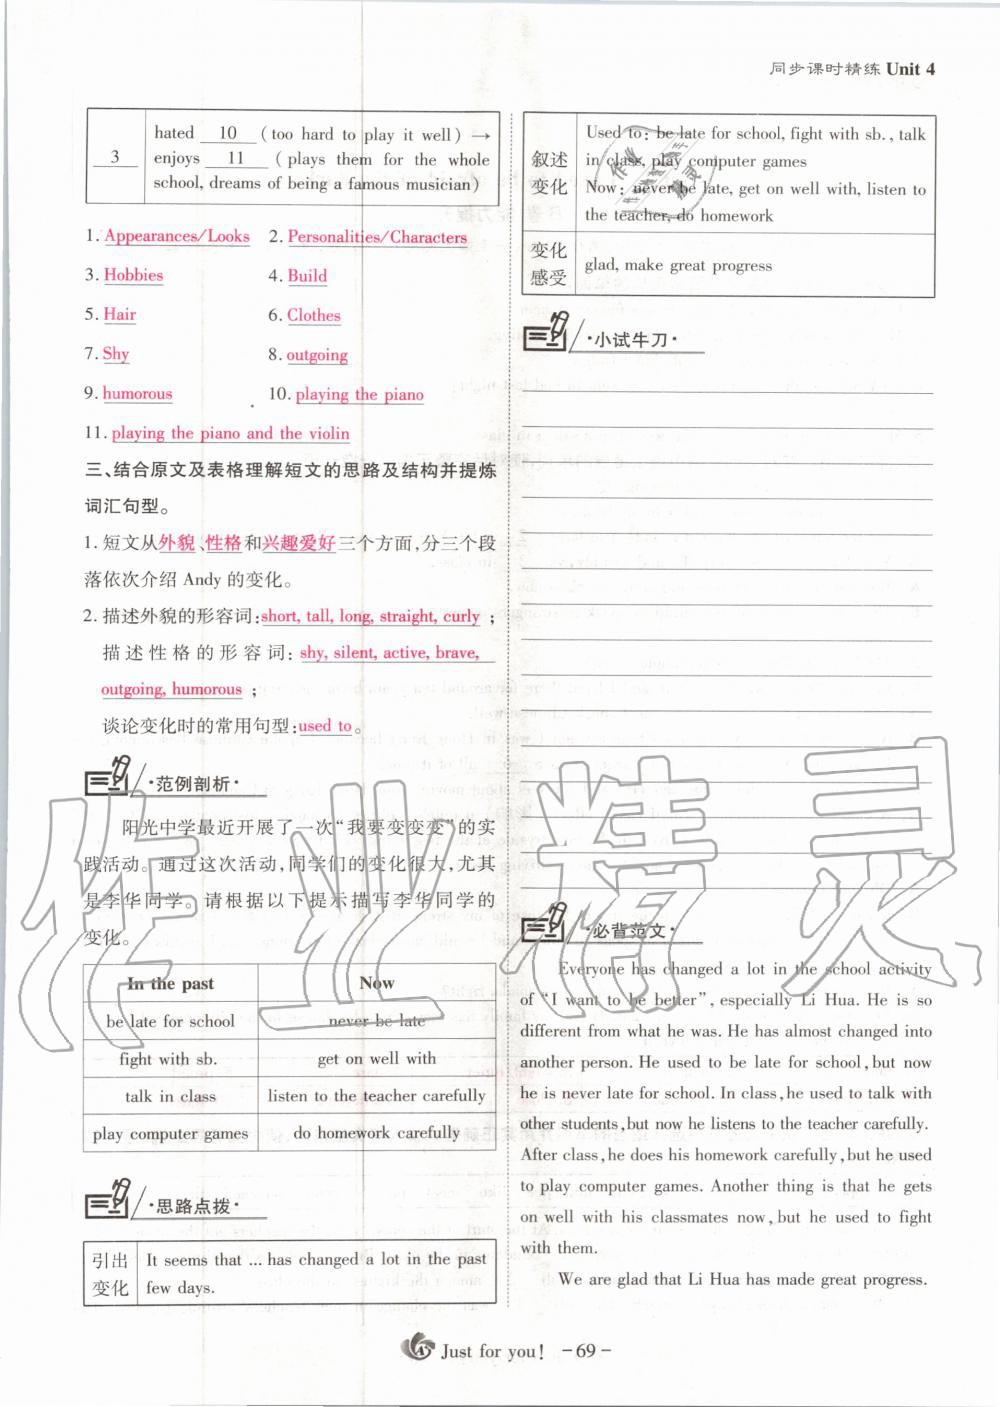 同步课时精练 Unit 4
3
hated 10 (too hard to play it well) →
enjoys 11 (plays them for the whole
school, dreams of being a famous musician)
1. Appearances/Looks 2. Personalities/Characters
3. Hobbies 4. Build
5. Hair 6. Clothes
7. Shy 8. outgoing
9. humorous 10. playing the piano
11. playing the piano and the violin
三、结合原文及表格理解短文的思路及结构并提炼
词汇句型。
1. 短文从外貌、性格和兴趣爱好三个方面,分三个段
落依次介绍 Andy 的变化。
2. 描述外貌的形容词:short, tall, long, straight, curly ;
描述性格的形容词: shy, silent, active, brave,
outgoing, humorous ;
谈论变化时的常用句型:used to。
·范例剖析·
阳光中学最近开展了一次“我要变变变”的实
践活动。通过这次活动,同学们的变化很大,尤其
是李华同学。请根据以下提示描写李华同学的
变化。
In the past Now
be late for school never be late
fight with sb. get on well with
talk in class listen to the teacher carefully
play computer games do homework carefully
·思路点拨·
引出
变化
It seems that ... has changed a lot in the past
few days.
叙述
变化
Used to: be late for school, fight with sb., talk
in class, play computer games
Now: never be late, get on well with, listen to
the teacher, do homework
变化
感受
glad, make great progress
·小试牛刀·
·必背范文·
Everyone has changed a lot in the school activity
of “I want to be better”, especially Li Hua. He is so
different from what he was. He has almost changed into
another person. He used to be late for school, but now
he is never late for school. In class, he used to talk with
other students, but now he listens to the teacher carefully.
After class, he does his homework carefully, but he used
to play computer games. Another thing is that he gets
on well with his classmates now, but he used to fight
with them.
We are glad that Li Hua has made great progress.
作业精灵
Just for you! －69－